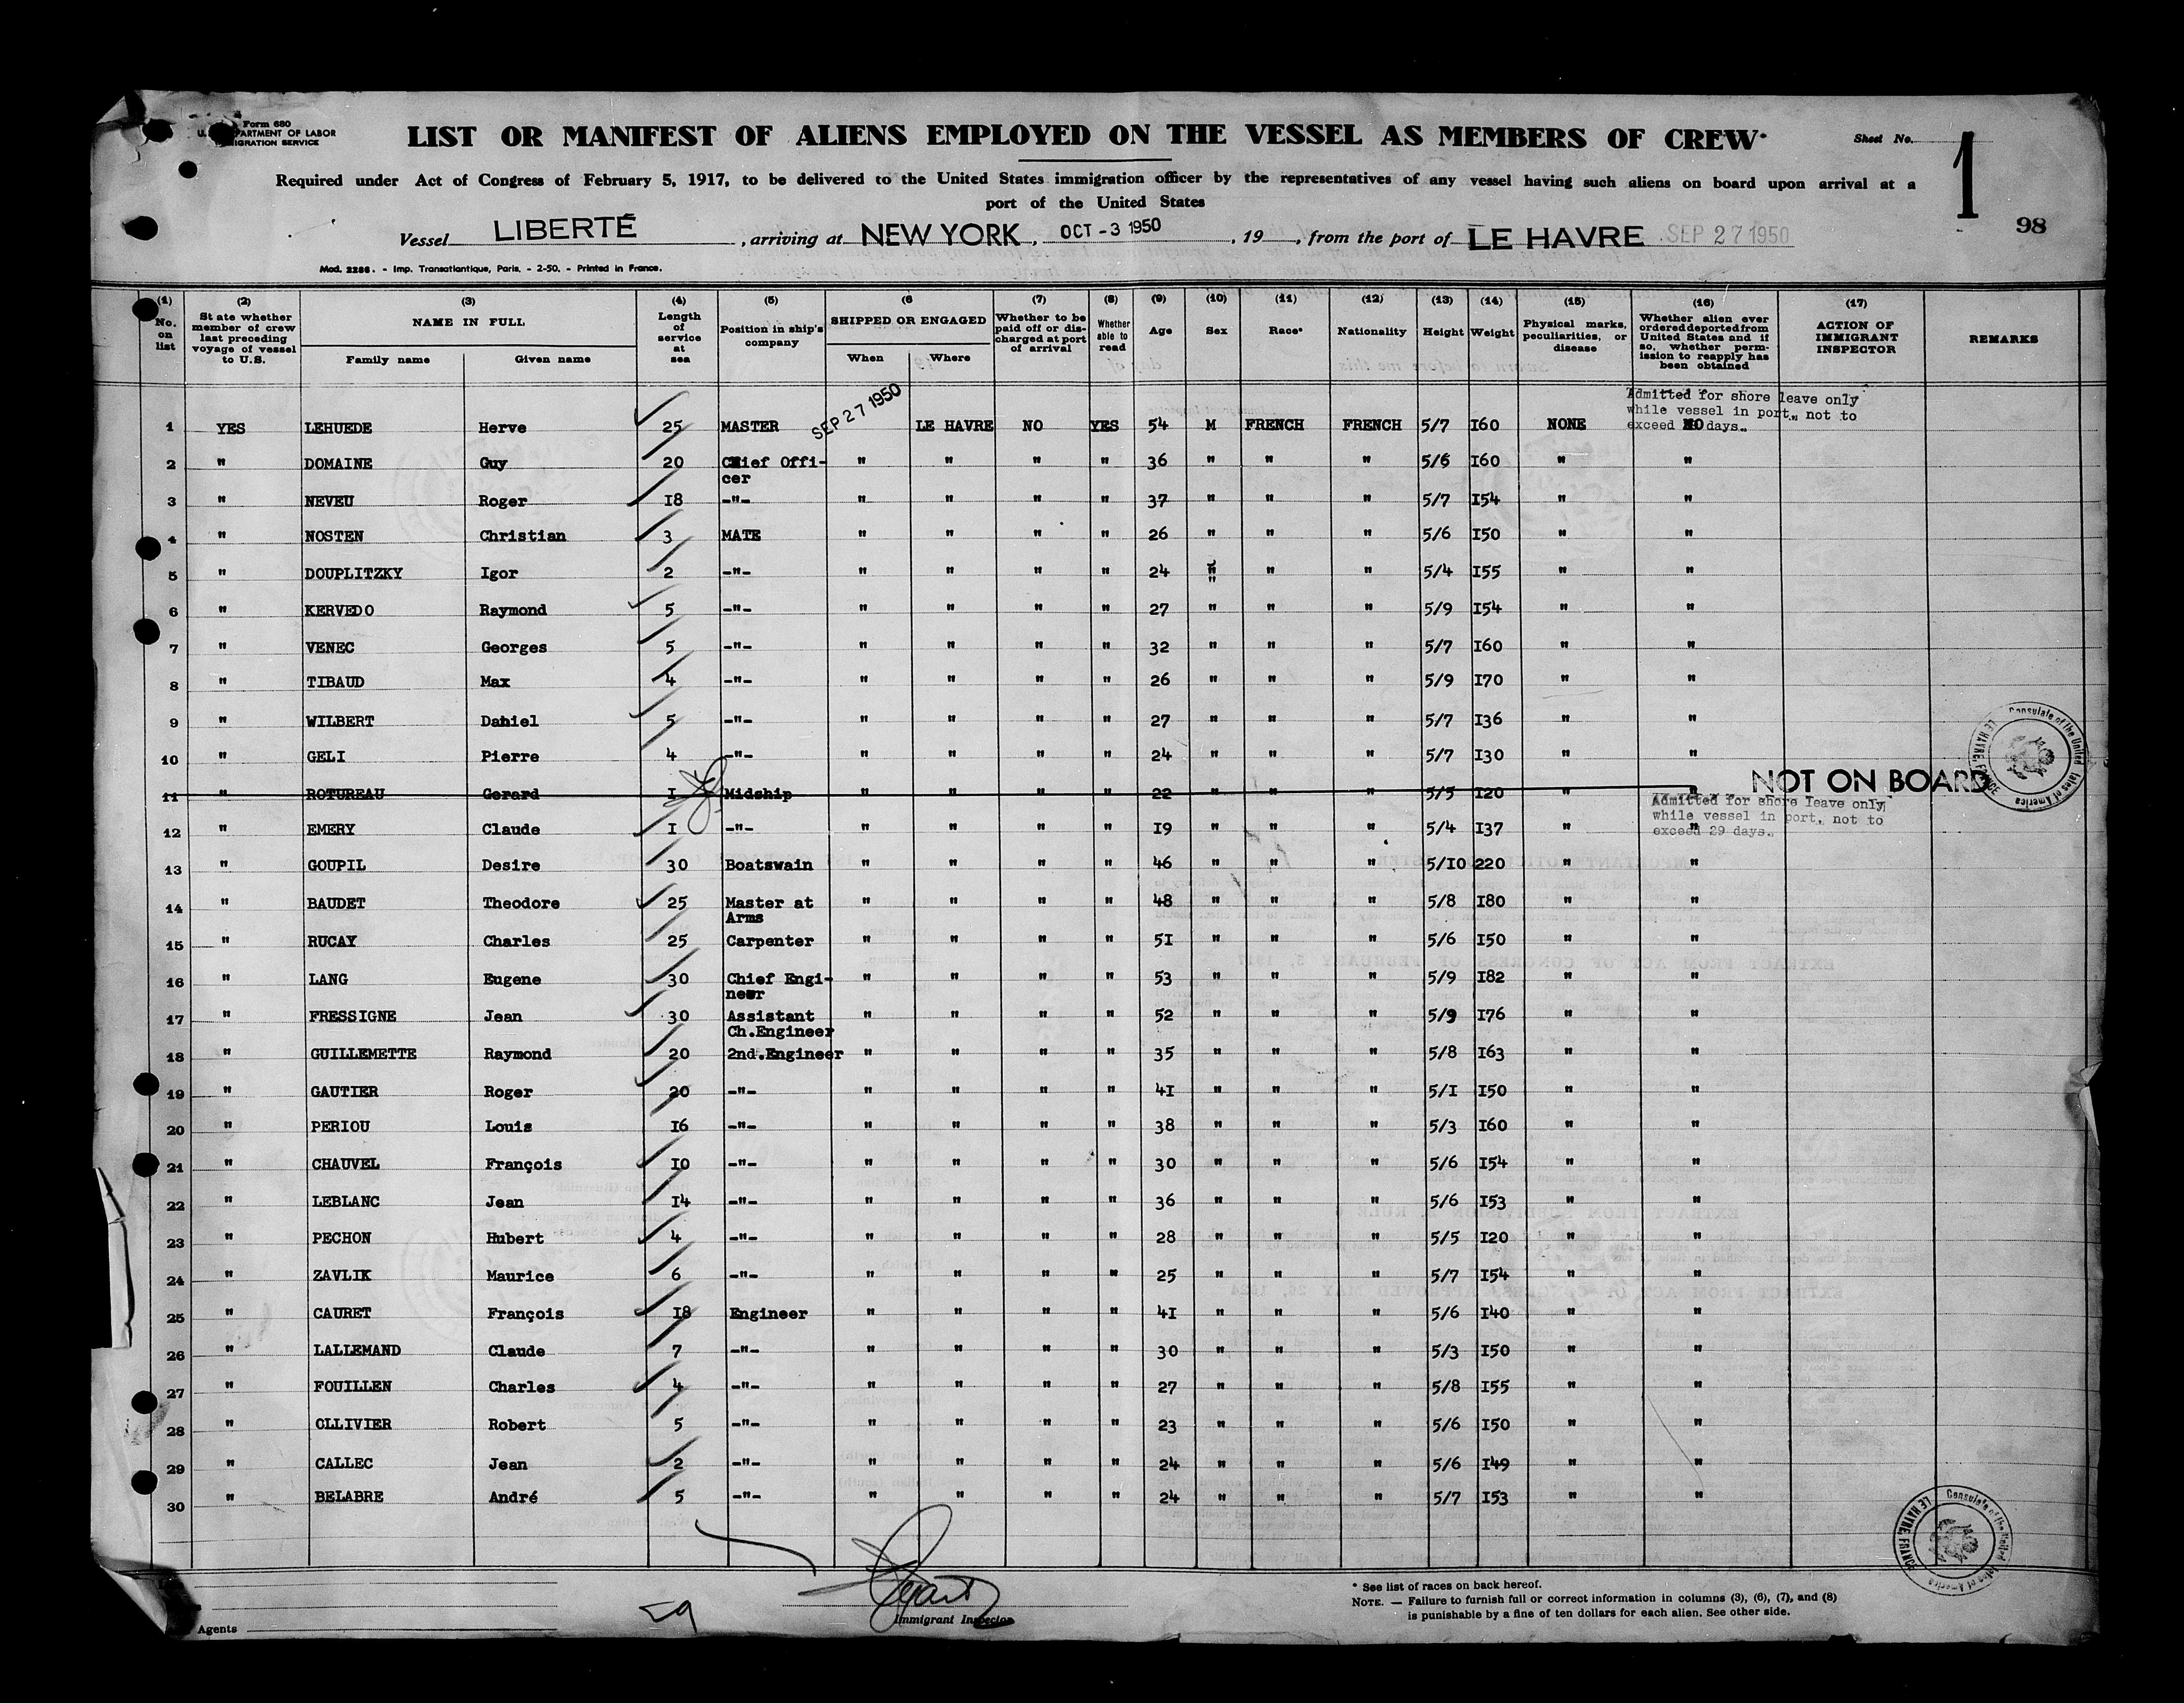 Form 680
U. PARTMENT OF LABOR
IGRATION SERVICE
LIST OR MANIFEST OF ALIENS EMPLOYED ON THE VESSEL AS MEMBERS OF CREW*
Sheet No. 1
Required under Act of Congress of February 5, 1917, to be delivered to the United States immigration officer by the representatives of any vessel having such aliens on board upon arrival at a
port of the United States
98
Vessel LIBERTÉ , arriving at NEW YORK , OCT - 3 1950 , 19 , from the port of LE HAVRE SEP 27 1950
Mod. 2286. - Imp. Transatlantique, Paris. - 2-50. - Printed in France.
(1) No. on list
(2) State whether member of crew last preceding voyage of vessel to U.S.
(3) NAME IN FULL Family name Given name
(4) Length of service at sea
(5) Position in ship's company
(6 SHIPPED OR ENGAGED When Where
(7) Whether to be paid off or discharged at port of arrival
(8) Whether able to read
(9) Age
(10) Sex
(11) Race*
(12) Nationality
(13) Height
(14) Weight
(15) Physical marks, peculiarities, or disease
(16) Whether alien ever ordered deported from United States and if so, whether permission to reapply has been obtained
(17) ACTION OF IMMIGRANT INSPECTOR
REMARKS
Admitted for shore leave only
while vessel in port, not to
exceed days.
1 YES LEHUEDE Herve 25 MASTER SEP 27 1950 LE HAVRE NO YES 54 M FRENCH FRENCH 5/7 I60 NONE NO
2 " DOMAINE Guy 20 Chief Offi-cer " " " " 36 " " " 5/6 I60 " "
3 " NEVEU Roger I8 -"- " " " " 37 " " " 5/7 I54 " "
4 " NOSTEN Christian 3 MATE " " " " 26 " " " 5/6 I50 " "
5 " DOUPLITZKY Igor 2 -"- " " " " 24 " " " 5/4 I55 " "
6 " KERVEDO Raymond 5 -"- " " " " 27 " " " 5/9 I54 " "
7 " VENEC Georges 5 -"- " " " " 32 " " " 5/7 I60 " "
8 " TIBAUD Max 4 -"- " " " " 26 " " " 5/9 I70 " "
9 " WILBERT Daniel 5 -"- " " " " 27 " " " 5/7 I36 " "
10 " GELI Pierre 4 -"- " " " " 24 " " " 5/7 I30 " "
11 " ROTUREAU Gerard I Midship " " " " 22 " " " 5/5 I20 " " NOT ON BOARD
Admitted for shore leave only
while vessel in port, not to
exceed 29 days.
12 " EMERY Claude I -"- " " " " I9 " " " 5/4 I37 " "
13 " GOUPIL Desire 30 Boatswain " " " " 46 " " " 5/I0 220 " "
14 " BAUDET Theodore 25 Master at Arms " " " " 48 " " " 5/8 I80 " "
15 " RUCAY Charles 25 Carpenter " " " " 5I " " " 5/6 I50 " "
16 " LANG Eugene 30 Chief Engi-neer " " " " 53 " " " 5/9 I82 " "
17 " FRESSIGNE Jean 30 Assistant Ch.Engineer " " " " 52 " " " 5/9 I76 " "
18 " GUILLEMETTE Raymond 20 2nd.Engineer " " " " 35 " " " 5/8 I63 " "
19 " GAUTIER Roger 20 -"- " " " " 4I " " " 5/I I50 " "
20 " PERIOU Louis I6 -"- " " " " 38 " " " 5/3 I60 " "
21 " CHAUVEL François I0 -"- " " " " 30 " " " 5/6 I54 " "
22 " LEBLANC Jean I4 -"- " " " " 36 " " " 5/6 I53 " "
23 " PECHON Hubert 4 -"- " " " " 28 " " " 5/5 I20 " "
24 " ZAVLIK Maurice 6 -"- " " " " 25 " " " 5/7 I54 " "
25 " CAURET François I8 Engineer " " " " 4I " " " 5/6 I40 " "
26 " LALLEMAND Claude 7 -"- " " " " 30 " " " 5/3 I50 " "
27 " FOUILLEN Charles 4 -"- " " " " 27 " " " 5/8 I55 " "
28 " OLLIVIER Robert 5 -"- " " " " 23 " " " 5/6 I50 " "
29 " CALLEC Jean 2 -"- " " " " 24 " " " 5/6 I49 " "
30 " BELABRE André 5 -"- " " " " 24 " " " 5/7 I53 " "
Consulate of the United States of America LE HAVRE, FRANCE
Consulate of the United States of America LE HAVRE, FRANCE
Agents
Immigrant Inspector
* See list of races on back hereof.
NOTE. — Failure to furnish full or correct information in columns (3), (6), (7), and (8)
is punishable by a fine of ten dollars for each alien. See other side.